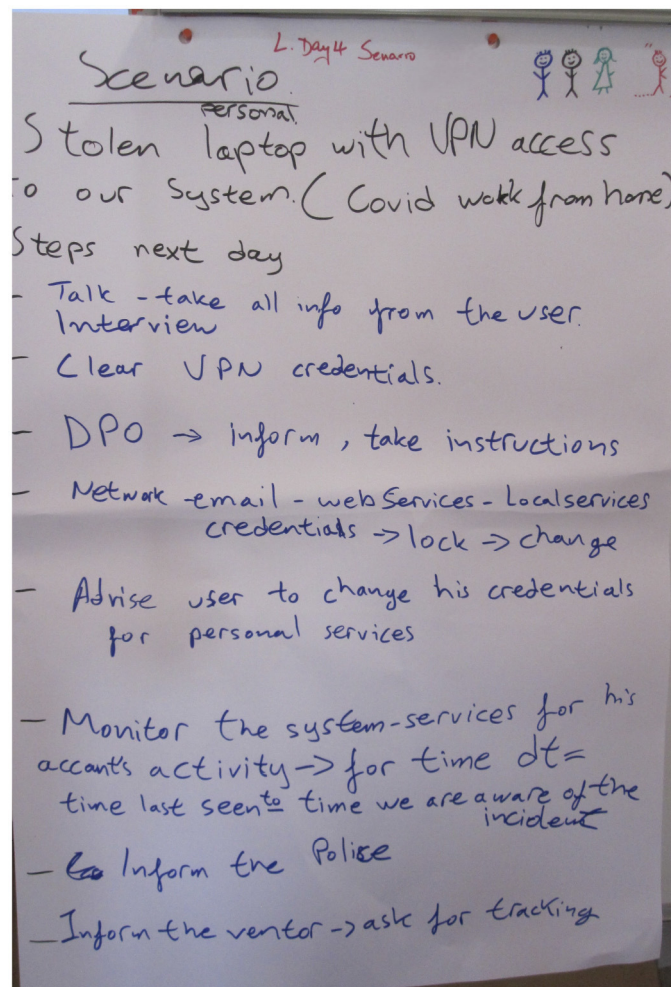 L. Day4 Senarro
Scenario
personal
Stolen laptop with VPN access
to our System. (Covid work from home)
Steps next day
- Talk - take all info from the user.
Interview
- Clear VPN credentials.
- DPO → inform, take instructions
- Network - email - webServices - Localservices
credentials → lock → change
- Advise user to change his credentials
for personal services
- Monitor the system-services for his
accant's activity → for time dt =
time last seen to time we are aware of the
incident
- Inform the Police
- Inform the ventor → ask for tracking